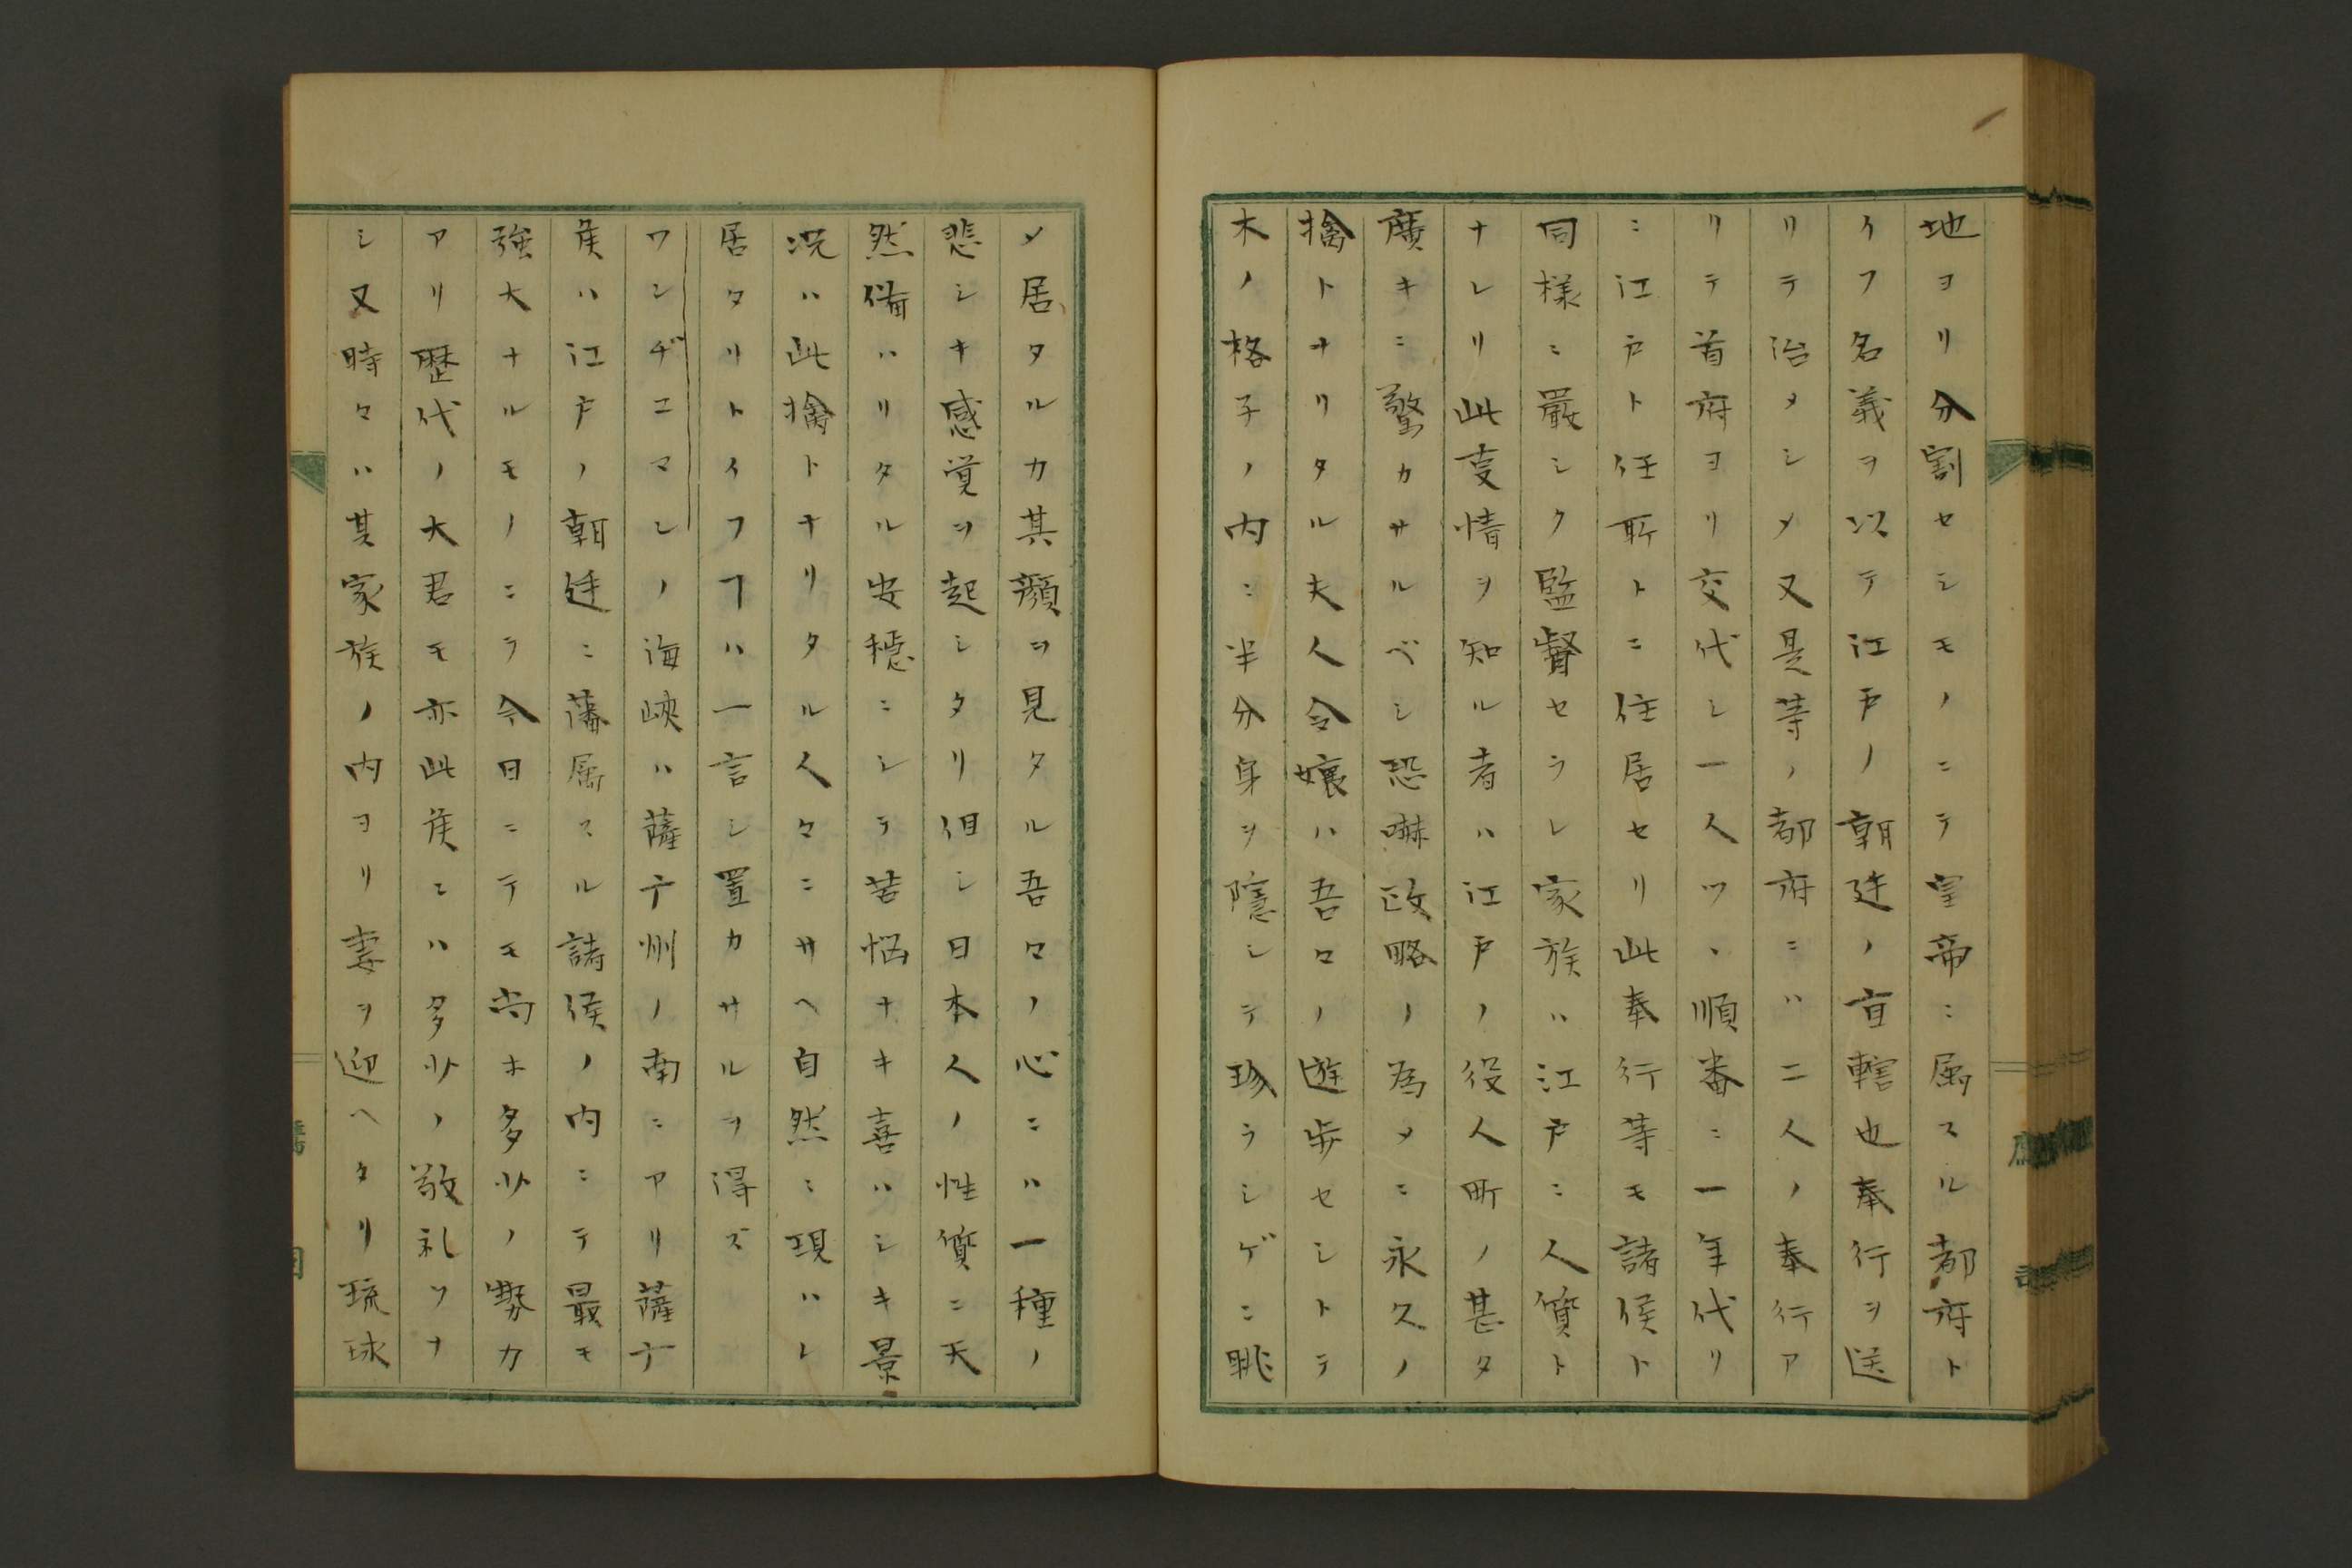 地ヨリ分割セシモノニテ皇帝ニ属スル都府ト
イフ名義ヲ以テ江戸ノ朝廷ノ直轄也奉行ヲ送
リテ治メシメ又是等ノ都府ニハ二人ノ奉行ア
リテ首府ヨリ交代シ一人ツヽ順番ニ一年代リ
ニ江戸ト任所トニ住居セリ此奉行等モ諸侯ト
同様ニ嚴シク監督セラレ家族ハ江戸ニ人質ト
ナレリ此事情ヲ知ル者ハ江戸ノ役人町ノ甚タ
廣キニ驚カサルベシ恐嚇政略ノ為メニ永久ノ
擒トナリタル夫人令嬢ハ吾々ノ遊歩セシトテ
木ノ格子ノ内ニ半分身ヲ隠シテ珍ラシゲニ眺
メ居タルカ其顔ヲ見タル吾々ノ心ニハ一種ノ
悲シキ感覚ヲ起シタリ但シ日本人ノ性質ニ天
然備ハリタル安穏ニシテ苦悩ナキ喜ハシキ景
况ハ此擒トナリタル人々ニサヘ自然ニ現ハレ
居タリトイフヿハ一言シ置カサルヲ得ズ
ワンヂエマンノ海峡ハ薩州ノ南ニアリ薩
侯ハ江戸ノ朝廷ニ藩属スル諸侯ノ内ニテ最モ
強大ナルモノニテ今日ニテモ尚ホ多少ノ勢力
アリ歴代ノ大君モ亦此侯ニハ多少ノ敬礼ヲナ
シ又時々ハ其家族ノ内ヨリ妻ヲ迎ヘタリ琉球